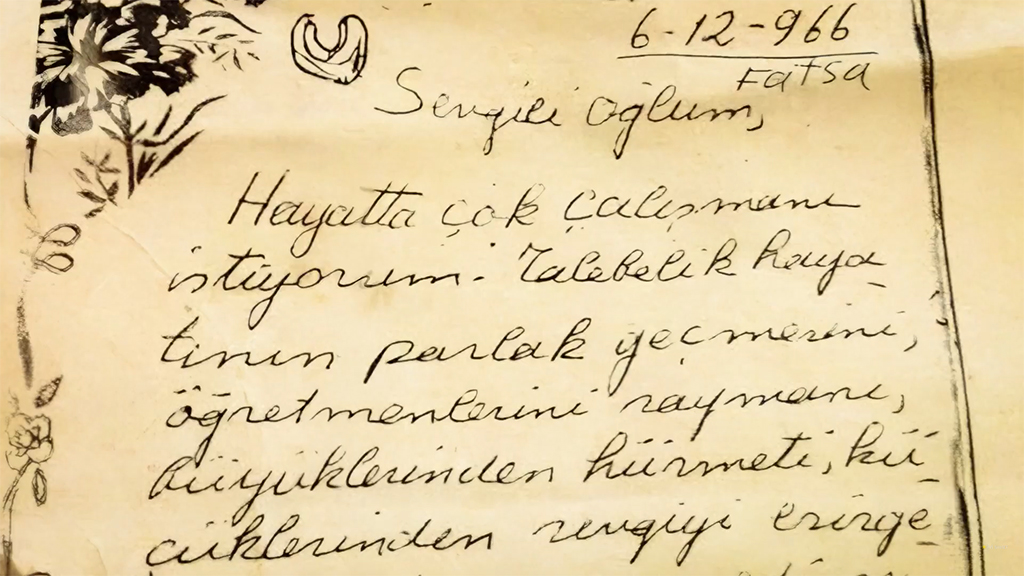 6-12-966
Fatsa
Sevgili oğlum,
Hayatta çok çalışmanı
istiyorum. Talebelik haya-
tının parlak geçmesini,
öğretmenlerini saymanı,
büyüklerinden hürmeti, kü-
cüklerinden sevgiyi esirge-